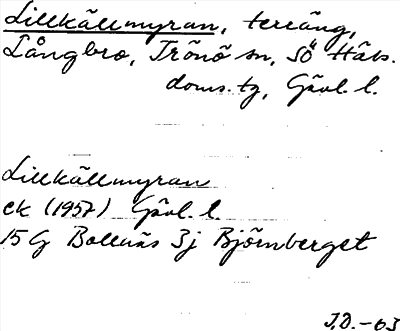 Lillkällmyran, terräng,
Långbro, Trönö sn, Sö Häls.
doms. tg, Gävl. l.
Lillkällmyran
ek (1957) Gävl. l.
15 G Bollnäs 3j Björnberget
J.D.-63